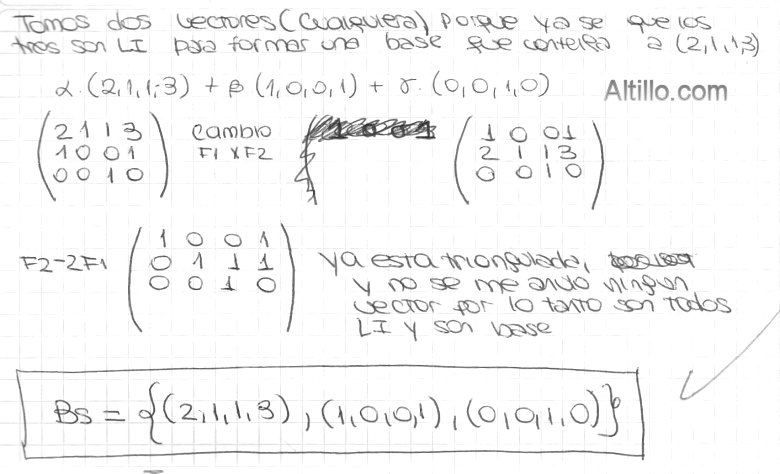 Tomos dos vectores (cualquiera) porque ya se que los
tres son LI para formar una base que contenga a (2,1,1,3)
α.(2,1,1,3) + β (1,0,0,1) + γ.(0,0,1,0)
Altillo.com
2 1 1 3
1 0 0 1
0 0 1 0
Cambio
F1 x F2
1 0 0 1
2 1 1 3
0 0 1 0
F2-2F1
1 0 0 1
0 1 1 1
0 0 1 0
ya esta triangulada,
y no se me anulo ningun
vector por lo tanto son todos
LI y son base
Bs = {(2,1,1,3), (1,0,0,1), (0,0,1,0)}